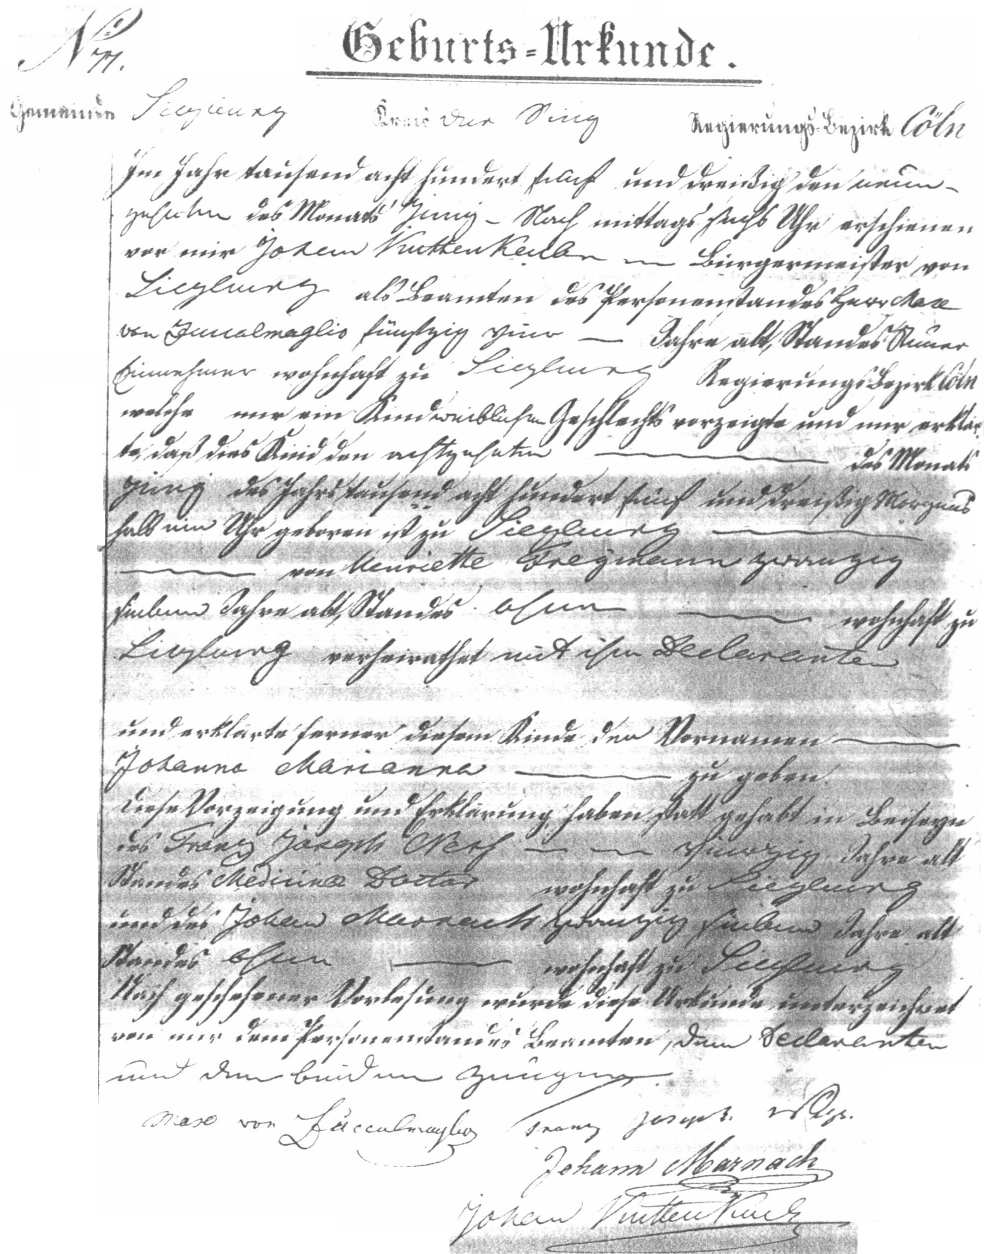 No 77.
Geburts-Urkunde.
Gemeinde Siegburg Kreis der Sieg Regierungs-Bezirk Cöln
Im Jahr tausend acht hundert fünf und dreißig den neun-
zehnten des Monats Juny - Nach mittags sechs Uhr erschienen
vor mir Johann Bürgermeister von
Siegburg als Beamten des Personenstandes Herr Max
von Zuccalmaglio fünfzig Jahre alt, Standes
wohnhaft zu Siegburg Regierungs Bezirk Cöln
welche mir ein Kind weiblichen Geschlechts vorzeigte und mir erklär
te, daß dies Kind den achtzehnten des Monats
Juny des Jahrs tausend acht hundert fünf und dreißig Morgens
halb ein Uhr geboren ist zu Siegburg
von Henriette zwanzig
sieben Jahre alt, Standes ohne wohnhaft zu
Siegburg verheirathet mit ihm Declaranten
und erklärte ferner diesem Kinde den Vornamen
Johanna Marianna zu geben
Diese Vorzeigung und Erklärung haben statt gehabt in Beiseyn
des Franz Joseph vierzig Jahre alt
Standes Medicinae Doctor wohnhaft zu Siegburg
und des Johann Marnach zwanzig sieben Jahre alt
Standes ohne wohnhaft zu Siegburg
Nach geschehener Vorlesung wurde diese Urkunde unterzeichnet
von mir dem Personenstandes Beamten, dem Declaranten
und den beiden Zeugen.
Max von Zuccalmaglio Franz Joseph
Johann Marnach
Johann